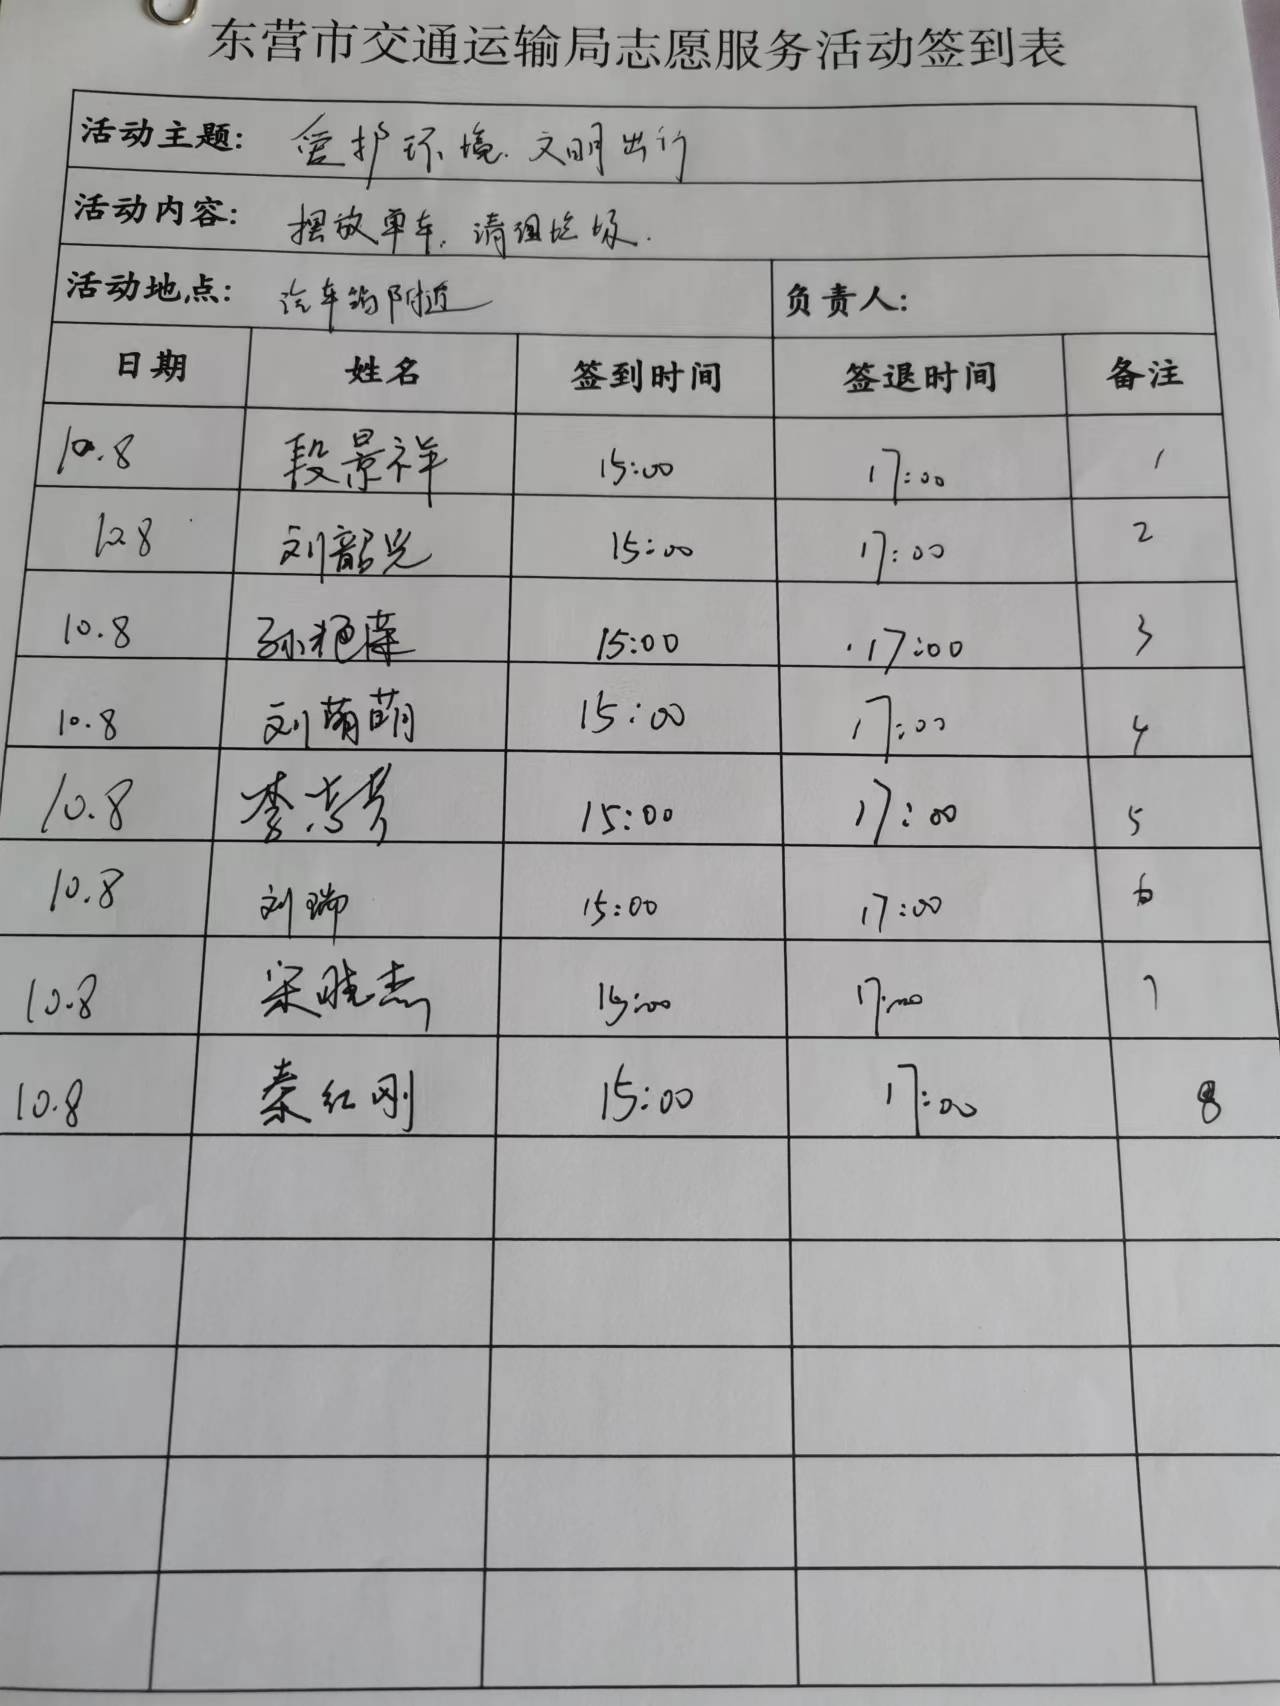 东营市交通运输局志愿服务活动签到表
活动主题: 爱护环境.文明出行
活动内容: 摆放单车.清理垃圾.
活动地点: 汽车站附近 负责人:
日期 姓名 签到时间 签退时间 备注
10.8 段景祥 15:00 17:00 1
10.8 刘韶光 15:00 17:00 2
10.8 孙艳 15:00 17:00 3
10.8 刘萌萌 15:00 17:00 4
10.8 李 芳 15:00 17:00 5
10.8 刘瑞 15:00 17:00 6
10.8 宋晓杰 15:00 17:00 7
10.8 秦红刚 15:00 17:00 8